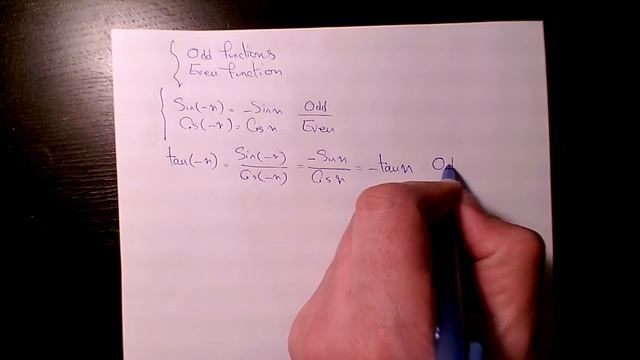 Odd functions
Even function
Sin(-x) = -Sinx Odd
Cos(-x) = Cosx Even
tan(-x) = Sin(-x)/Cos(-x) = -Sinx/Cosx = -tanx Od